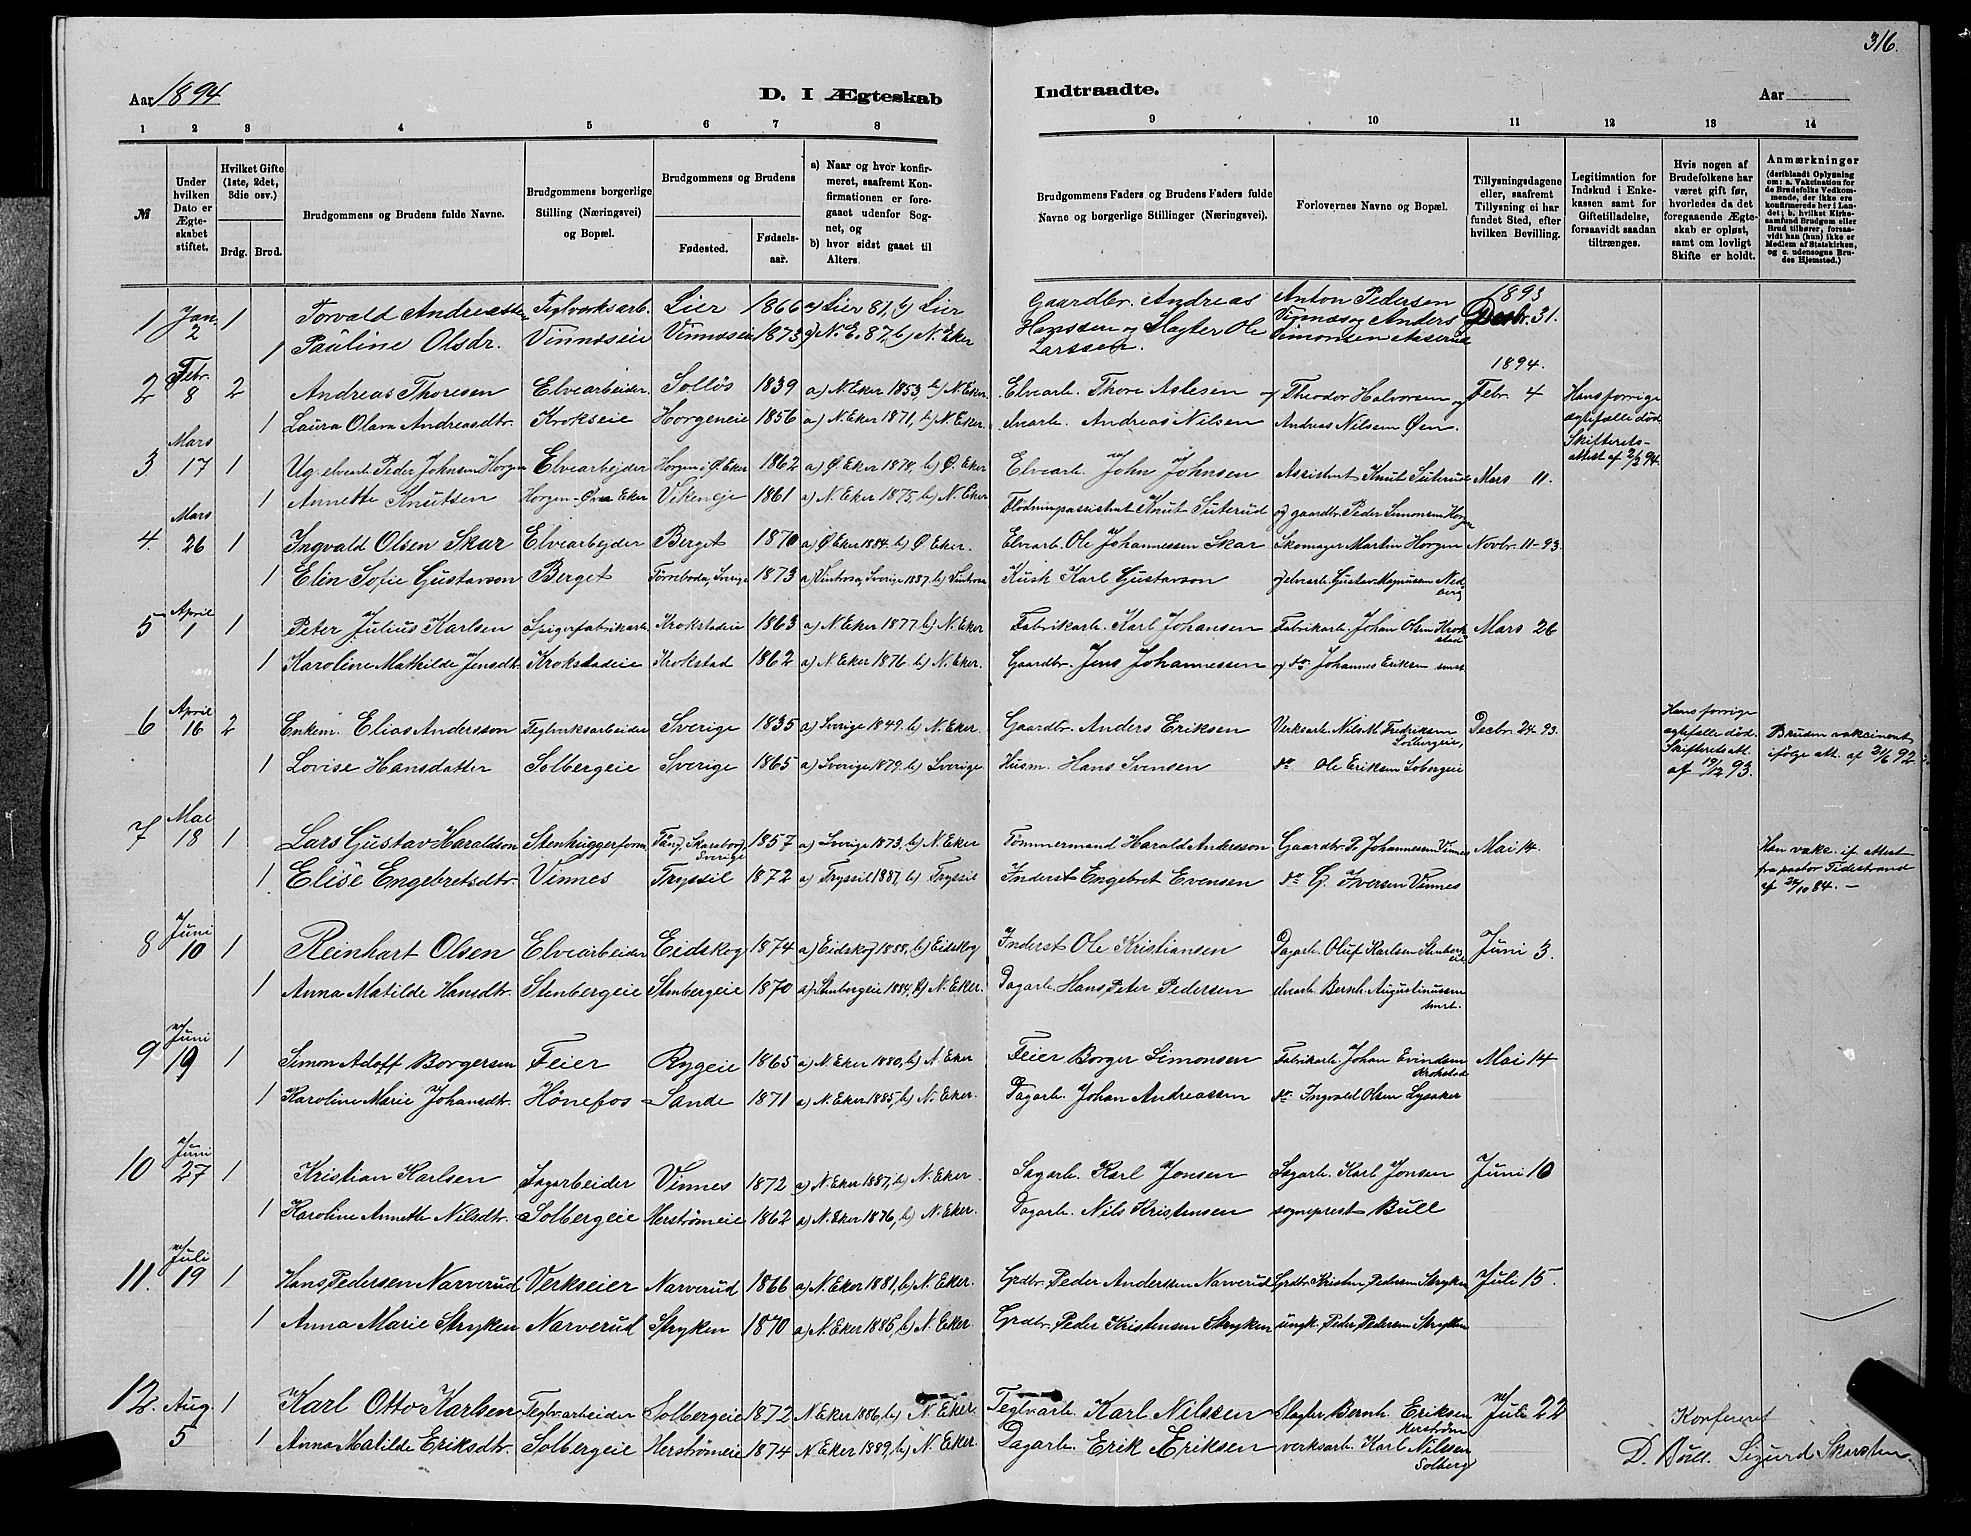 316.
Aar 1894
D. I Ægteskab Indtraadte.
Aar
1 2 3 4 5 6 7 8 9 10 11 12 13 14
№
Under hvilken Dato er Ægteskabet stiftet.
Hvilket Gifte (1ste, 2det, 3die osv.)
Brdg. Brud.
Brudgommens og Brudens fulde Navne.
Brudgommens borgerlige Stilling (Næringsvei) og Bopæl.
Brudgommens og Brudens
Fødested. Fødselsaar.
a) Naar og hvor konfirmeret, saafremt Konfirmationen er foregaaet udenfor Sognet, og
b) hvor sidst gaaet til Alters.
Brudgommens Faders og Brudens Faders fulde Navne og borgerlige Stillinger (Næringsvei).
Forlovernes Navne og Bopæl.
Tillysningsdagene eller, saafremt Tillysning ei har fundet Sted, efter hvilken Bevilling.
Legitimation for Indskud i Enkekassen samt for Giftetilladelse, forsaavidt saadan tiltrænges.
Hvis nogen af Brudefolkene har været gift før, hvorledes da det foregaaende Ægteskab er opløst, samt om lovligt Skifte er holdt.
Anmærkninger (deriblandt Oplysning om: a. Vakcination for de Brudefolks Vedkommende, der ikke ere konfirmerede her i Landet; b. hvilket Kirkesamfund Brudgom eller Brud tilhører, forsaavidt han (hun) ikke er Medlem af Statskirken, og c. udensogns Brudes Hjemsted.)
1 Jan. 2 1 Torvald Andreassen Teglværksarb. Lier 1866 a) Lier 81, b) Lier Gaardbr. Andreas Hanssen og Slagter Ole Larssen. Anton Pedersen Vinnes og Anders Simonsen Aaserud 1893 Decbr. 31.
1 Pauline Olsdr. Vinnæseie Vinnæseie 1873 a) N. E. 87, b) N. Eker
2 Febr. 8 2 Andreas Thoresen Elvearbeider Solløs 1839 a) N. Eker 1853, b) N. Eker. Elvearb. Thore Aslesen og Theodor Halvorsen og 1894. Febr. 4 Hans forrige ægtefælle død Skifterets-attest af 2/2 94.
1 Laura Olava Andreasdtr. Krokseie Horgeneie 1856 a) N. Eker 1871, b) N. Eker. elvarb. Andreas Nilsen Andreas Nilsen Øen.
3 Mars 17 1 Ug. elvearb. Peder Johnsen Horgen Elvearbejder Horgen i Ø. Eker 1862 a) Ø. Eker 1878, b) Ø. Eker Elvearb. John Johnsen Assistent Knut Suterud Mars 11.
1 Annette Knutsen Horgen - Øvre Eker Vikeneje 1861 a) N. Eker 1875, b) N. Eker Flødningsassistent Knut Suterud og gaardbr. Peder Simonsen Horgen
4. Mars 26 1 Ingvald Olsen Skar Elvearbejder Berget 1870 a) Ø Eker 1884. b) Ø Eker. Elvearb. Ole Johannessen Skar Skomager Martin Horgen Novbr. 11-93.
1 Elin Sofie Gustavson Berget Törreboda, Sverige 1873 a) Vintrosa, Sverige 1887. b) Vintrosa Kusk Karl Gustavson og elvarb. Gustav Magnussen Nedberg
5 April 1 1 Peter Julius Karlsen Spigerfabrikarb. Krokstadeie 1863 a) N. Eker 1877 b) N. Eker Fabrikarb. Karl Johansen Fabrikarb. Johan Olsen Krokstad Mars 26
1 Karoline Mathilde Jensdt. Krokstadeie Krokstad 1862 a) N. Eker 1876. b) N. Eker. Gaardbr. Jens Johannessen og do. Johannes Eriksen smst
6 April 16 2 Enkem. Elias Andersson Teglverksarbeider Sverige 1835 a) Sverige 1849. b) N. Eker. Gaardbr. Anders Eriksen Verksarb. Nils M. Fredriksen Solbergeie, Decbr. 24-93. Hans forrige ægtefælle død. Skifteretsatt. af 19/12 93. Bruden vakcineret ifølge att. af 21/6 92
1 Lovise Hansdatter Solbergeie Sverige 1865 a) Sverige 1879. b) Sverige Husm. Hans Svensen do Ole Eriksen Solbergeie
7 Mai 18 1 Lars Gustav Haraldson Stenhuggerform. Täng, Skaraborg Sverige 1857 a) Sverige 1873, b) N. Eker Tømmermand Harald Andersson Gaardbr. P. Johannessen Vinnes Mai 14. Han vakc. if. attest fra pastor Tidestrand af 24/10 84. –
1 Elise Engebretsdtr. Vinnes Tryssil 1872 a) Tryssil 1887, b) Tryssil Inderst Engebret Evensen do G. Iversen Vinnes
8 Juni 10 1 Reinhart Olsen Elvearbeider Eidskog 1874 a) Eidskog 1888, b) Eidskog Inderst Ole Kristiansen Dagarb. Oluf Karlsen Stenbergeie Juni 3.
1 Anna Matilde Hansdtr. Stenbergeie Stenbergeie 1870 a) Stenbergeie 1884, b) N. Eker. Dagarb. Hans Peter Pedersen elvearb. Bernh. Augustinussen smst.
9 Juni 19 1 Simon Adolf Borgersen Feier Rygeie 1865 a) N. Eker 1880, b) N. Eker Feier Borger Simonsen Fabrikarb. Johan Evindsen Krokstad Mai 14
1 Karoline Marie Johansdt. Hönefos Sande 1871 a) N. Eker 1885, b) N. Eker. Dagarb. Johan Andreassen do. Ingvald Olsen Lysaker
10 Juni 27 1 Kristian Karlsen Sagarbeider Vinnes 1872 a) N. Eker 1887, b) N. Eker. Sagarb. Karl Jonsen Sagarb. Karl Jonsen Juni 10
1 Karoline Annette Nilsdtr. Solbergeie Herströmeie 1862 a) N. Eker 1876, b) N. Eker. Dagarb. Nils Kristensen sogneprest Bull
11. Juli 19 1 Hans Pedersen Narverud Verkseier Narverud 1866 a) N. Eker 1881, b) N. Eker. Grdbr. Peder Anderssen Narverud Grdbr. Kristen Pedersen Stryken Juli 15.
1 Anna Marie Stryken Narverud Stryken 1870 a) N. Eker 1885, b) N. Eker. Grdbr. Peder Kristensen Stryken ungk. Peder Pedersen Stryken
12. Aug. 5 1 Karl Otto Karlsen Teglvarbeider Solbergeie 1872 N. Eker 1886, b) N. Eker. Teglvarb. Karl Nilssen Slagter Bernh. Eriksen Herström Juli 22
1 Anna Matilde Eriksdtr. Solbergeie Herströmeie 1874 N. Eker 1889, b) N. Eker. Dagarb. Erik Eriksen verksarb. Karl Nilssen Solberg
Konfereret
D. Bull. Sigurd Skarsten.